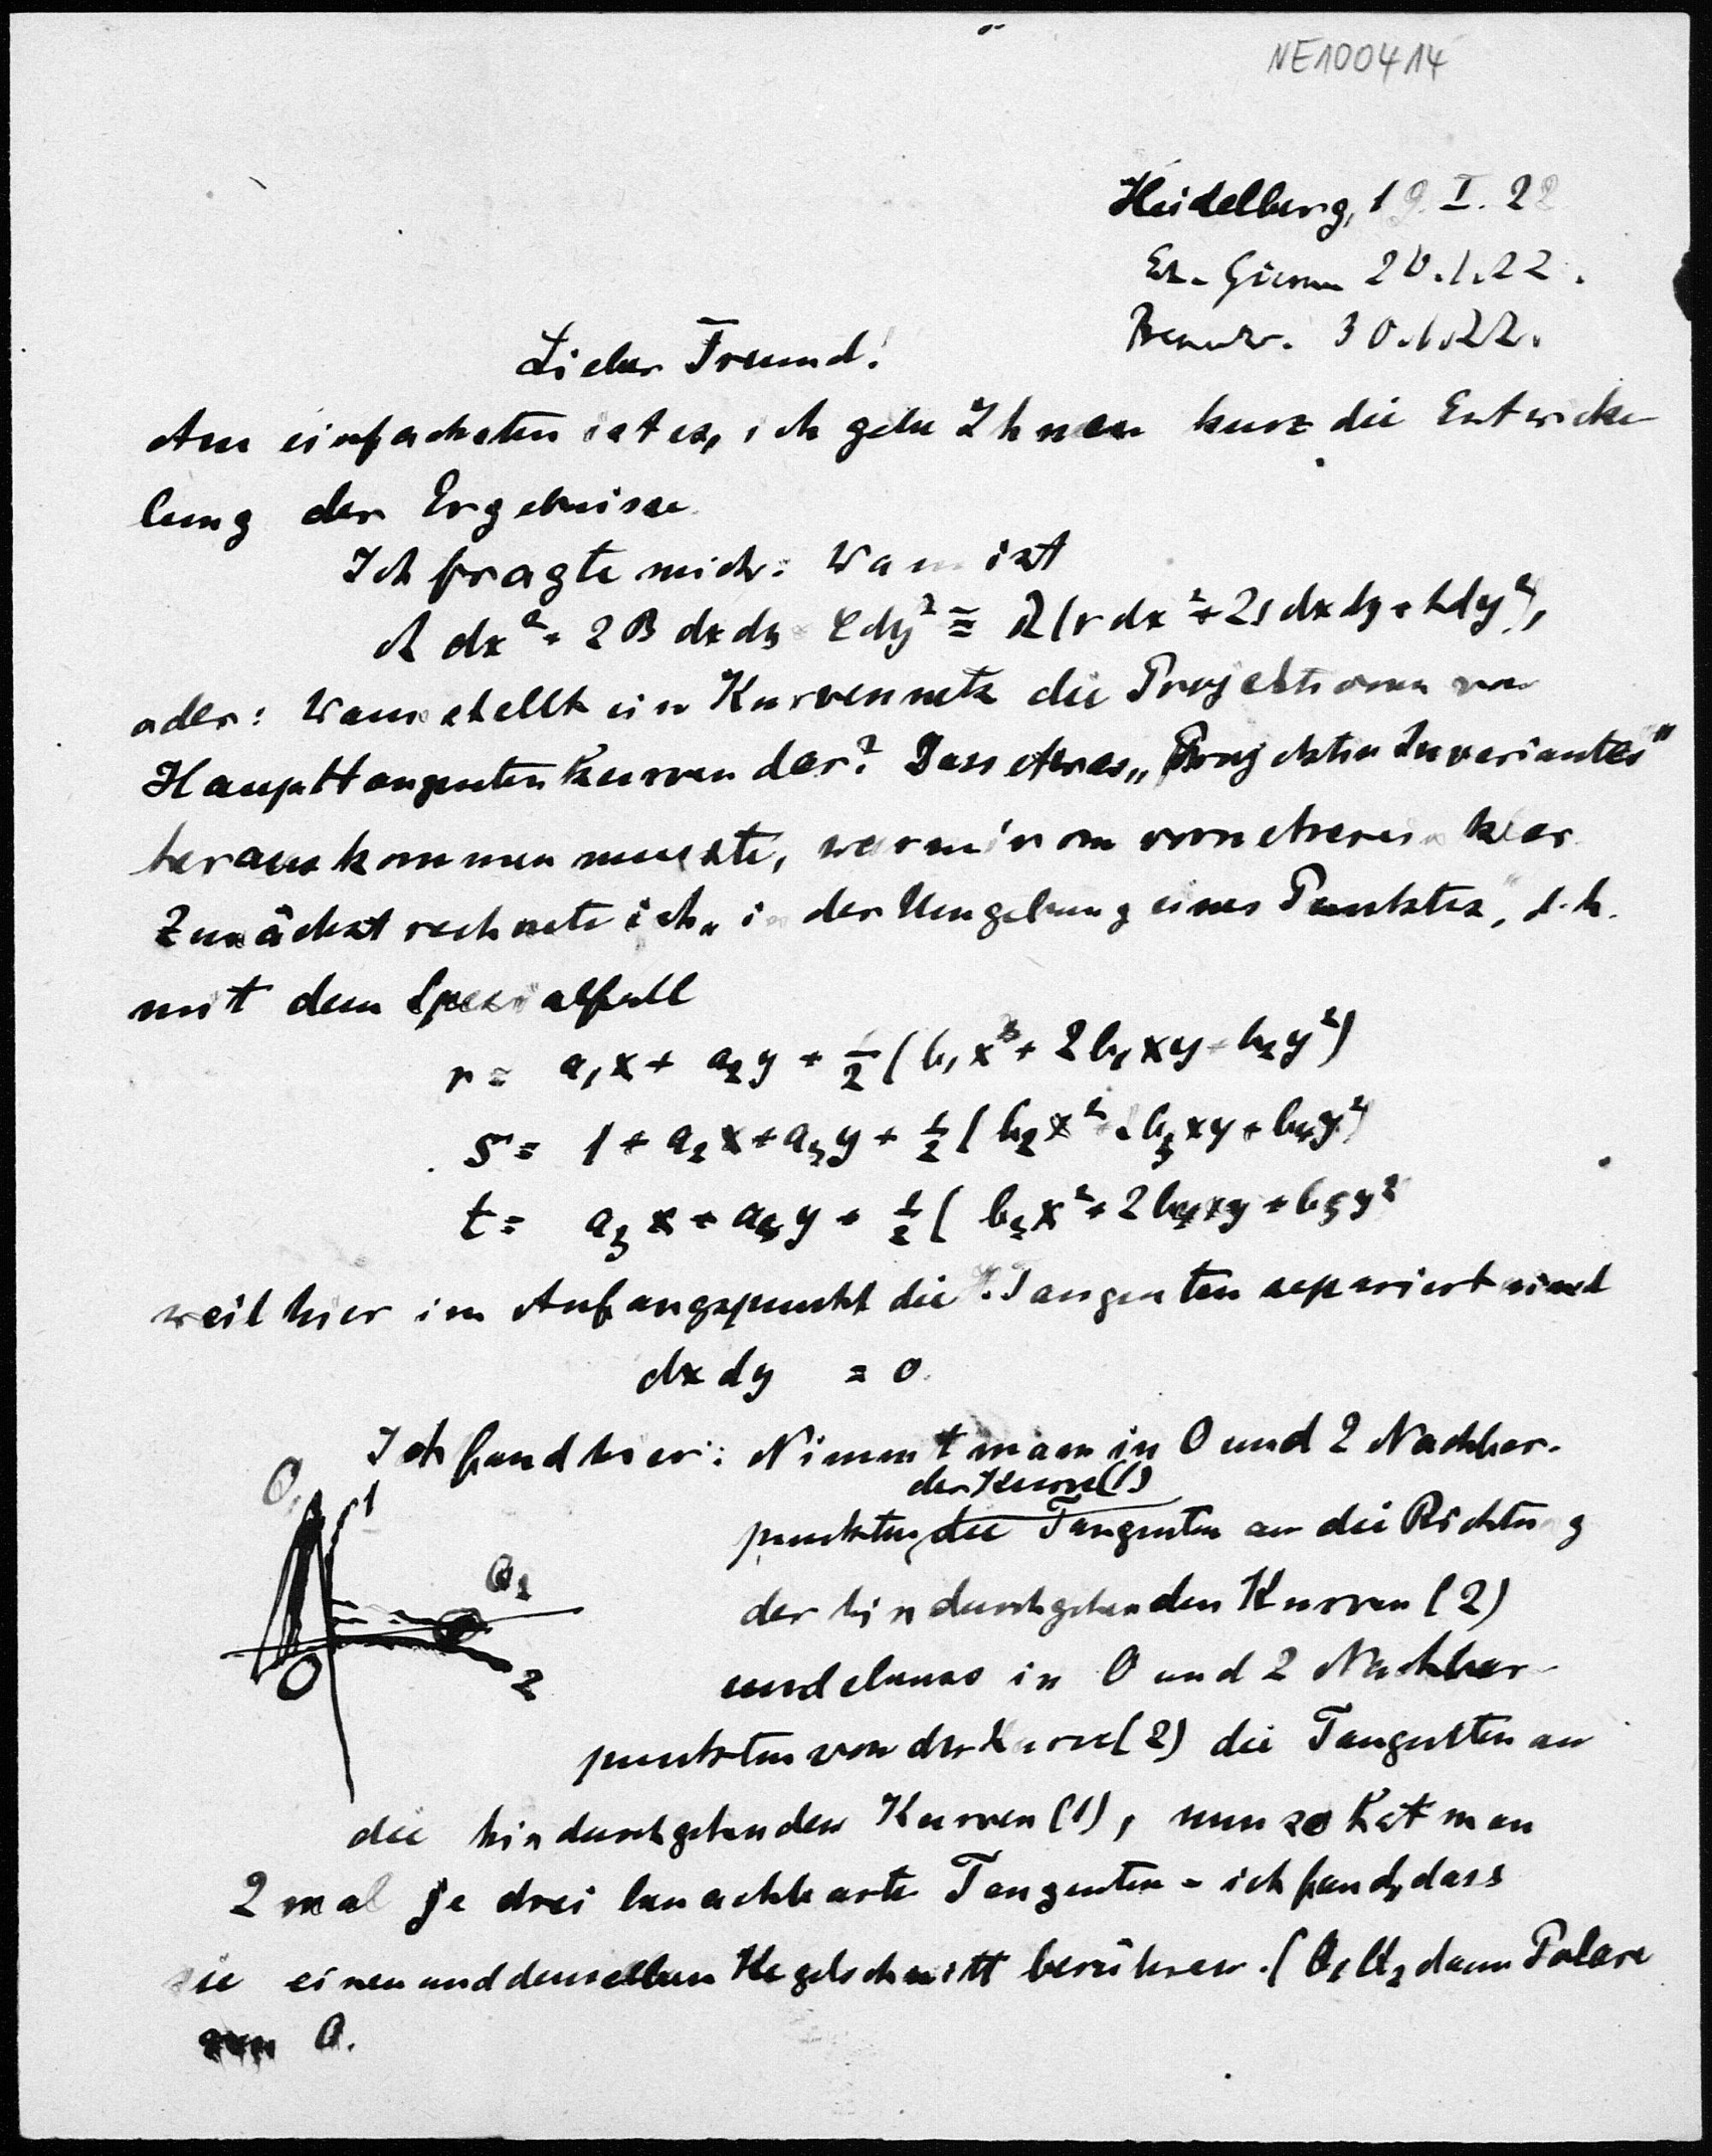 NE100414
Heidelberg, 19. I. 22
20.1.22.
30.1.22.
Lieber Freund!
Am einfachsten ist es, ich gebe Ihnen kurz die Entwicke-
lung der Ergebnisse.
Ich fragte mich: Wann ist
A dx² + 2 B dx dy + C dy² ≡ λ (r dx² + 2s dx dy + t dy²),
oder: Wann stellt ein Kurvennetz die Projektionen von
Haupttangentenkurven dar? Dass etwas „Projektiv Invariantes"
herauskommen musste, war mir von vorneherein klar.
Zunächst rechnete ich „in der Umgebung eines Punktes", d.h.
mit dem Spezialfall
r = a₁x + a₂y + ½ (b₁x² + 2b₂xy + b₃y²)
s = 1 + a₂x + a₃y + ½ (b₂x² + 2b₃xy + b₄y²)
t = a₃x + a₄y + ½ ( b₃x² + 2b₄xy + b₅y²
weil hier im Anfangspunkt die H. Tangenten separiert sind
dx dy = 0.
Ich fand hier: Nimmt man in O und 2 Nachbar-
der Kurve (1)
punkten die Tangenten an die Richtung
der hindurchgehenden Kurven (2)
und ebenso in O und 2 Nachbar-
punkten von der Kurve (2) die Tangenten an
die hindurchgehenden Kurven (1), nun so hat man
2 mal je drei benachbarte Tangenten - ich fand, dass
sie einen und denselben Kegelschnitt berühren. (O₁O₂ dann Polare
O.
O₁
1
O₂
O
2